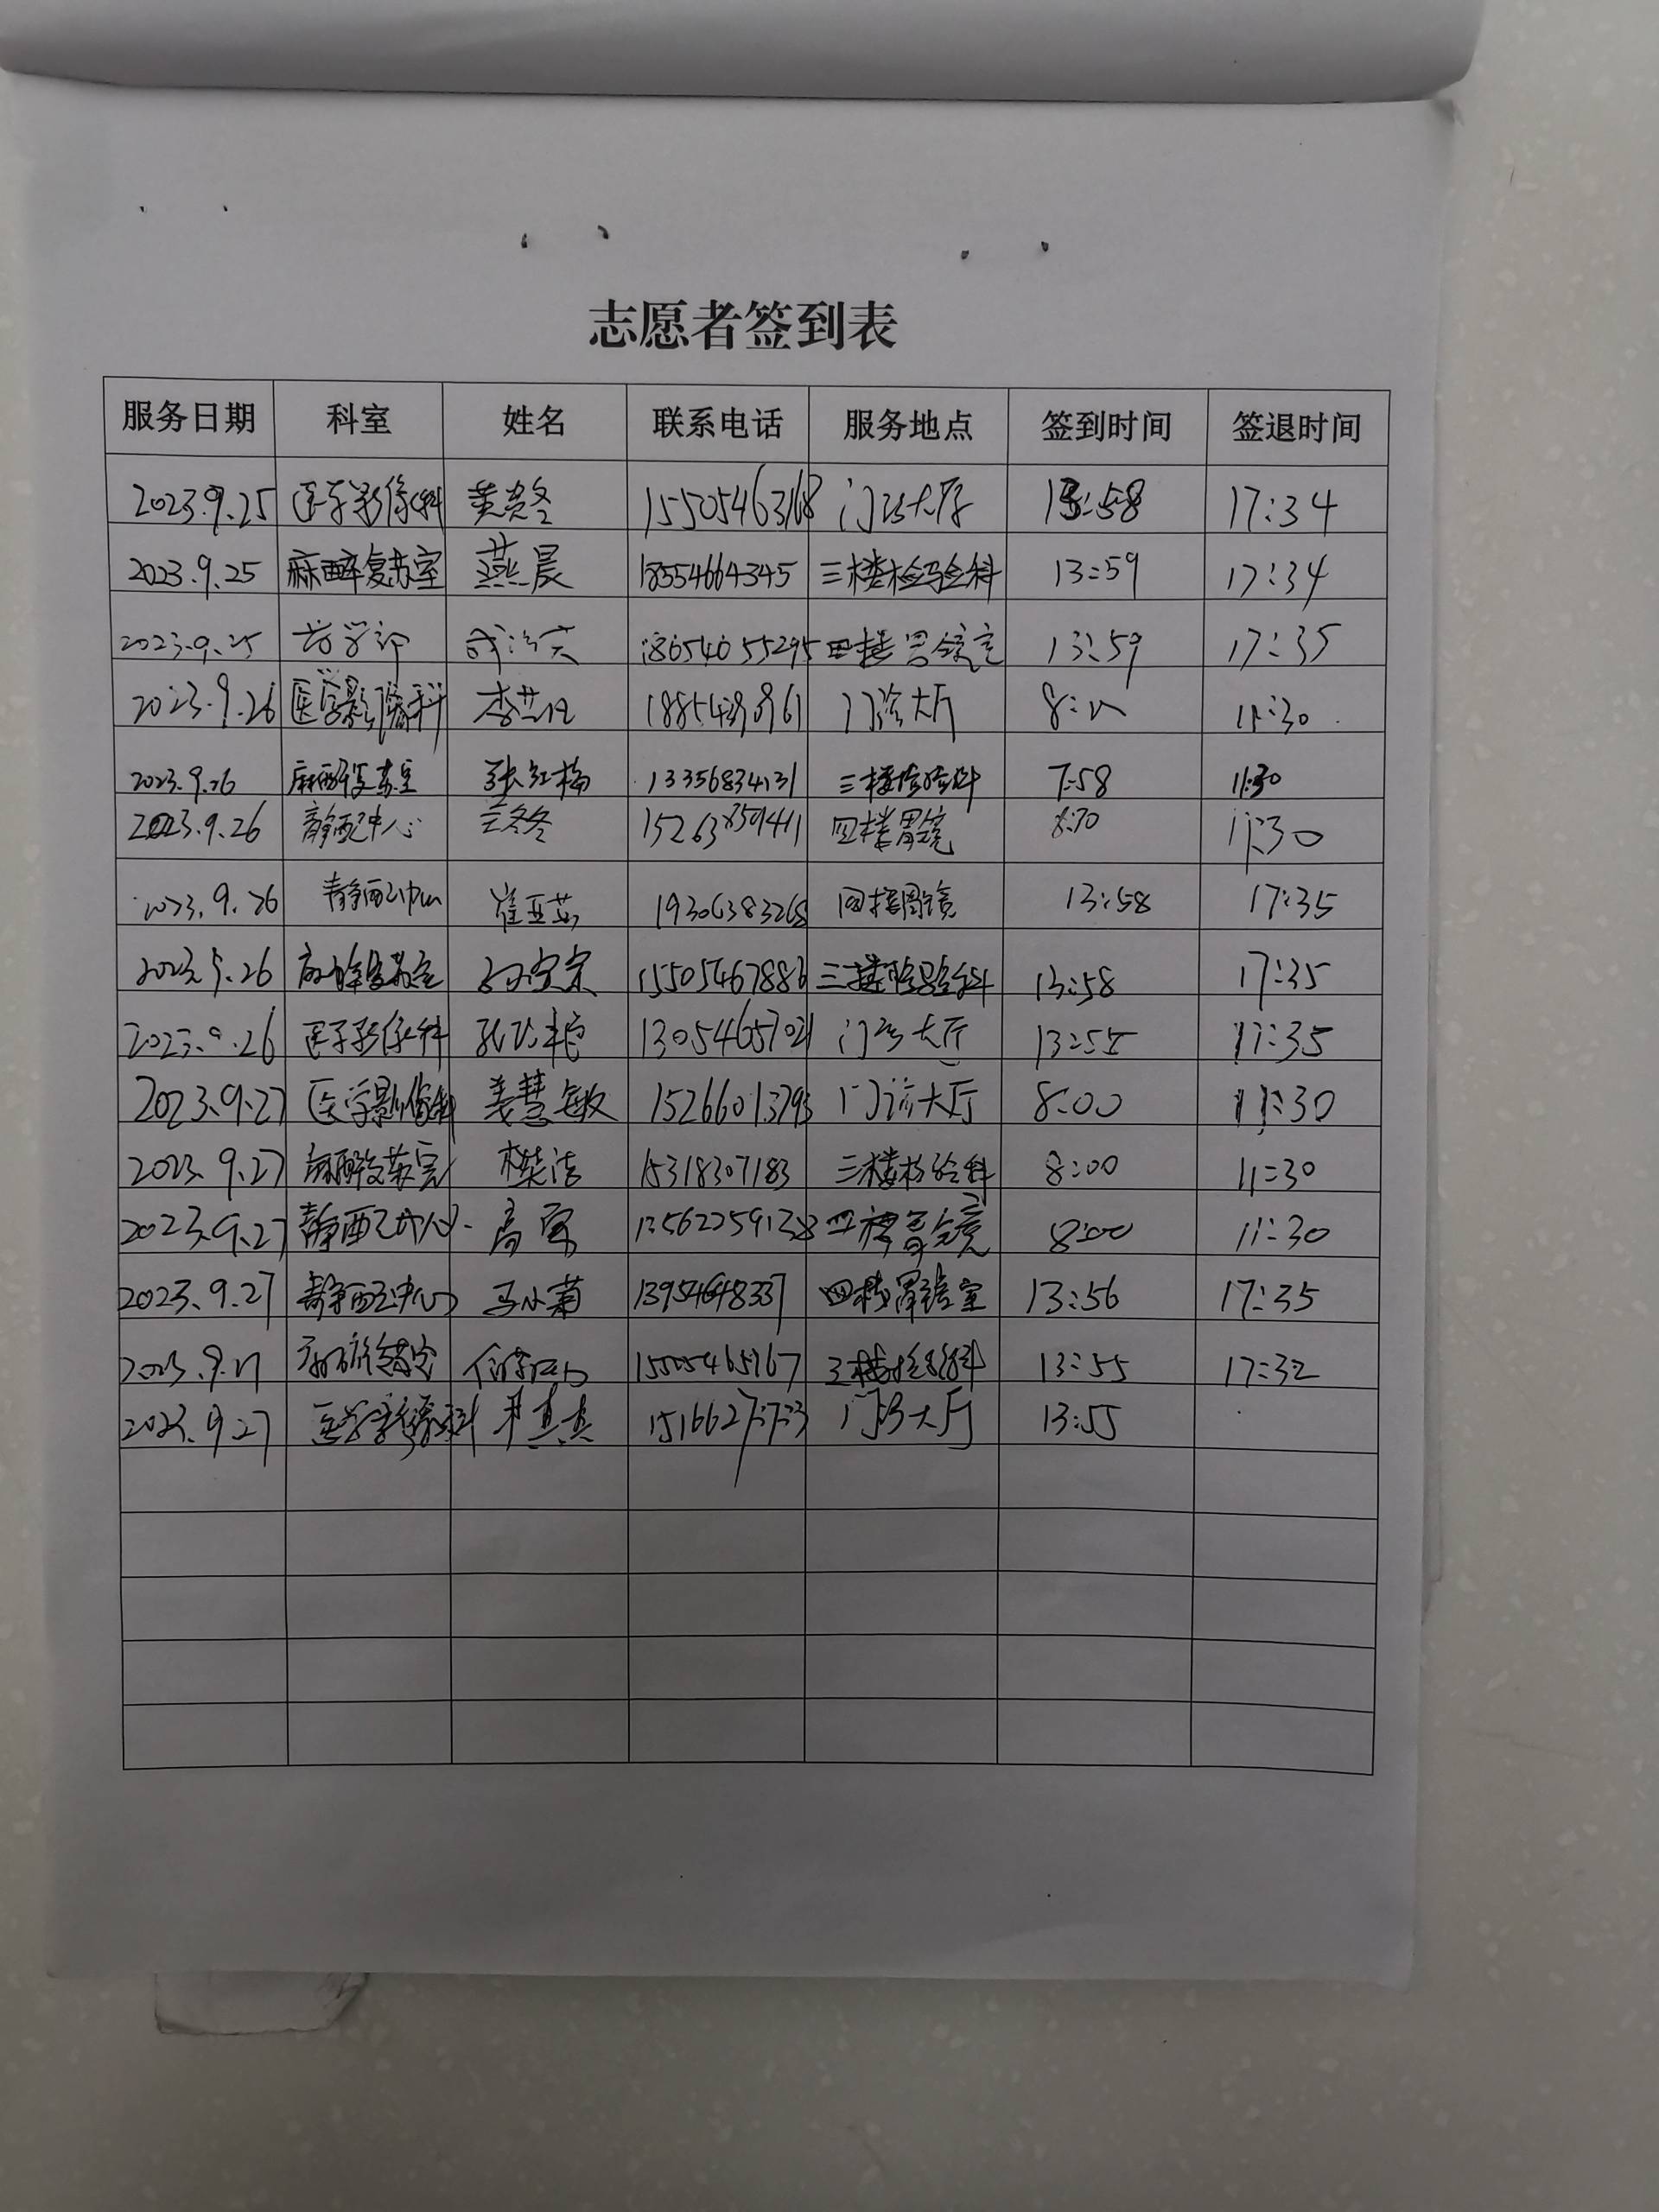 志愿者签到表
服务日期 科室 姓名 联系电话 服务地点 签到时间 签退时间
2023.9.25 医学影像科 黄尧冬 15505463168 门诊大厅 13:58 17:34
2023.9.25 麻醉复苏室 燕晨 18554664345 三楼检验科 13:59 17:34
2023.9.25 药学部 18654055295 四楼胃镜室 13:59 17:35
2023.9.26 医学影像科 门诊大厅 11:30
2023.9.26 麻醉复苏室 张红梅 13356834131 三楼检验科 7:58 11:30
2023.9.26 静配中心 兰冬冬 15263859411 四楼胃镜 11:30
2023.9.26 静配中心 崔亚茹 19306383268 四楼胃镜 13:58 17:35
2023.9.26 麻醉复苏室 15505467886 三楼检验科 13:58 17:35
2023.9.26 医学影像科 13054657021 门诊大厅 13:55 17:35
2023.9.27 医学影像科 姜慧敏 15266013793 门诊大厅 8:00 11:30
2023.9.27 麻醉复苏室 樊洁 15318307183 三楼检验科 8:00 11:30
2023.9.27 静配中心 高 13562259138 四楼胃镜 8:00 11:30
2023.9.27 静配中心 马小菊 13954648337 四楼胃镜室 13:56 17:35
2023.9.27 麻醉复苏室 15505465767 三楼检验科 13:55 17:32
2023.9.27 医学影像科 真真 门诊大厅 13:55